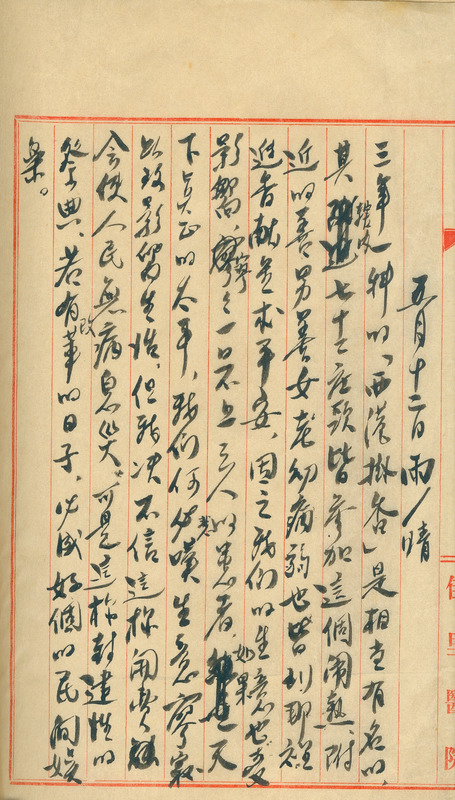 五月十二日 雨/晴
三年一科的「西港掛香」是相當有名的,
其轄内七十二庄頭皆參加這個鬧熱,附
近的善男善女老幼病弱也皆到那裡
進香獻金求平安,因之我們的生意也受
影響,寧々一日不上三人的患者,如果天
下真正的太平,我們何必嘆着生意寥寂
以致影響生性,但我決不信這樣開費
会使人民無病息災,可是這樣封建性的
祭典,若有改革的日子,必成好個的民間娛
樂。
佳里醫院